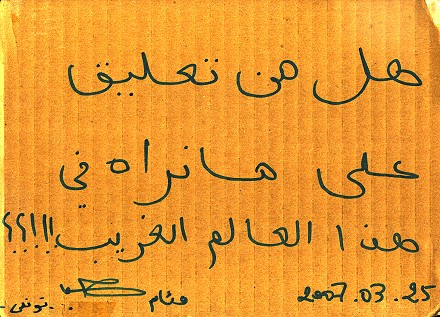 هل من تعليق
على ما نراه في
هذا العالم الغريب!!!؟؟
هشام
2007.03.25
-تونس-